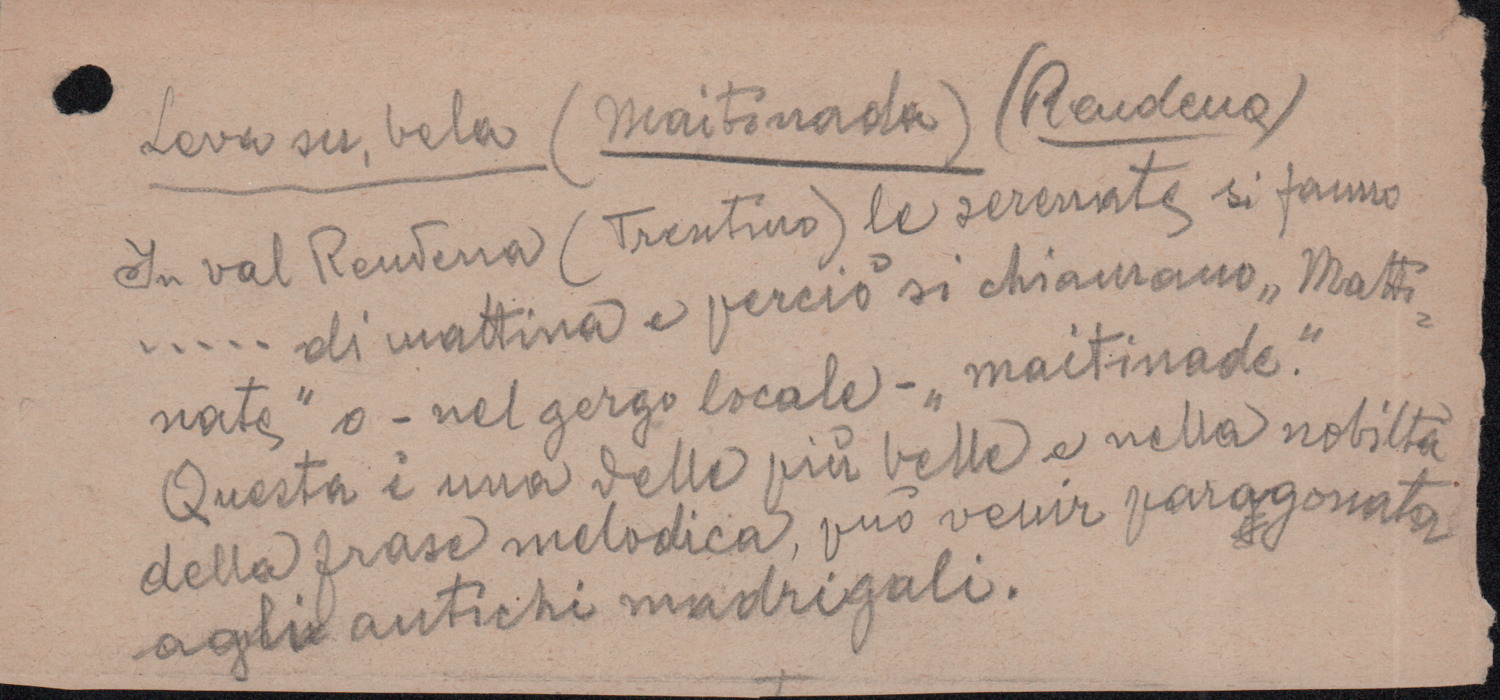 Leva su, bela (Maitinada) (Rendena)
In val Rendena (Trentino) le serenate si fanno
..... di mattina e perciò si chiamano „Matti=
nate" o - nel gergo locale - „maitinade."
Questa è una delle più belle e nella nobiltà
della frase melodica, può venir paragonata
agli antichi madrigali.